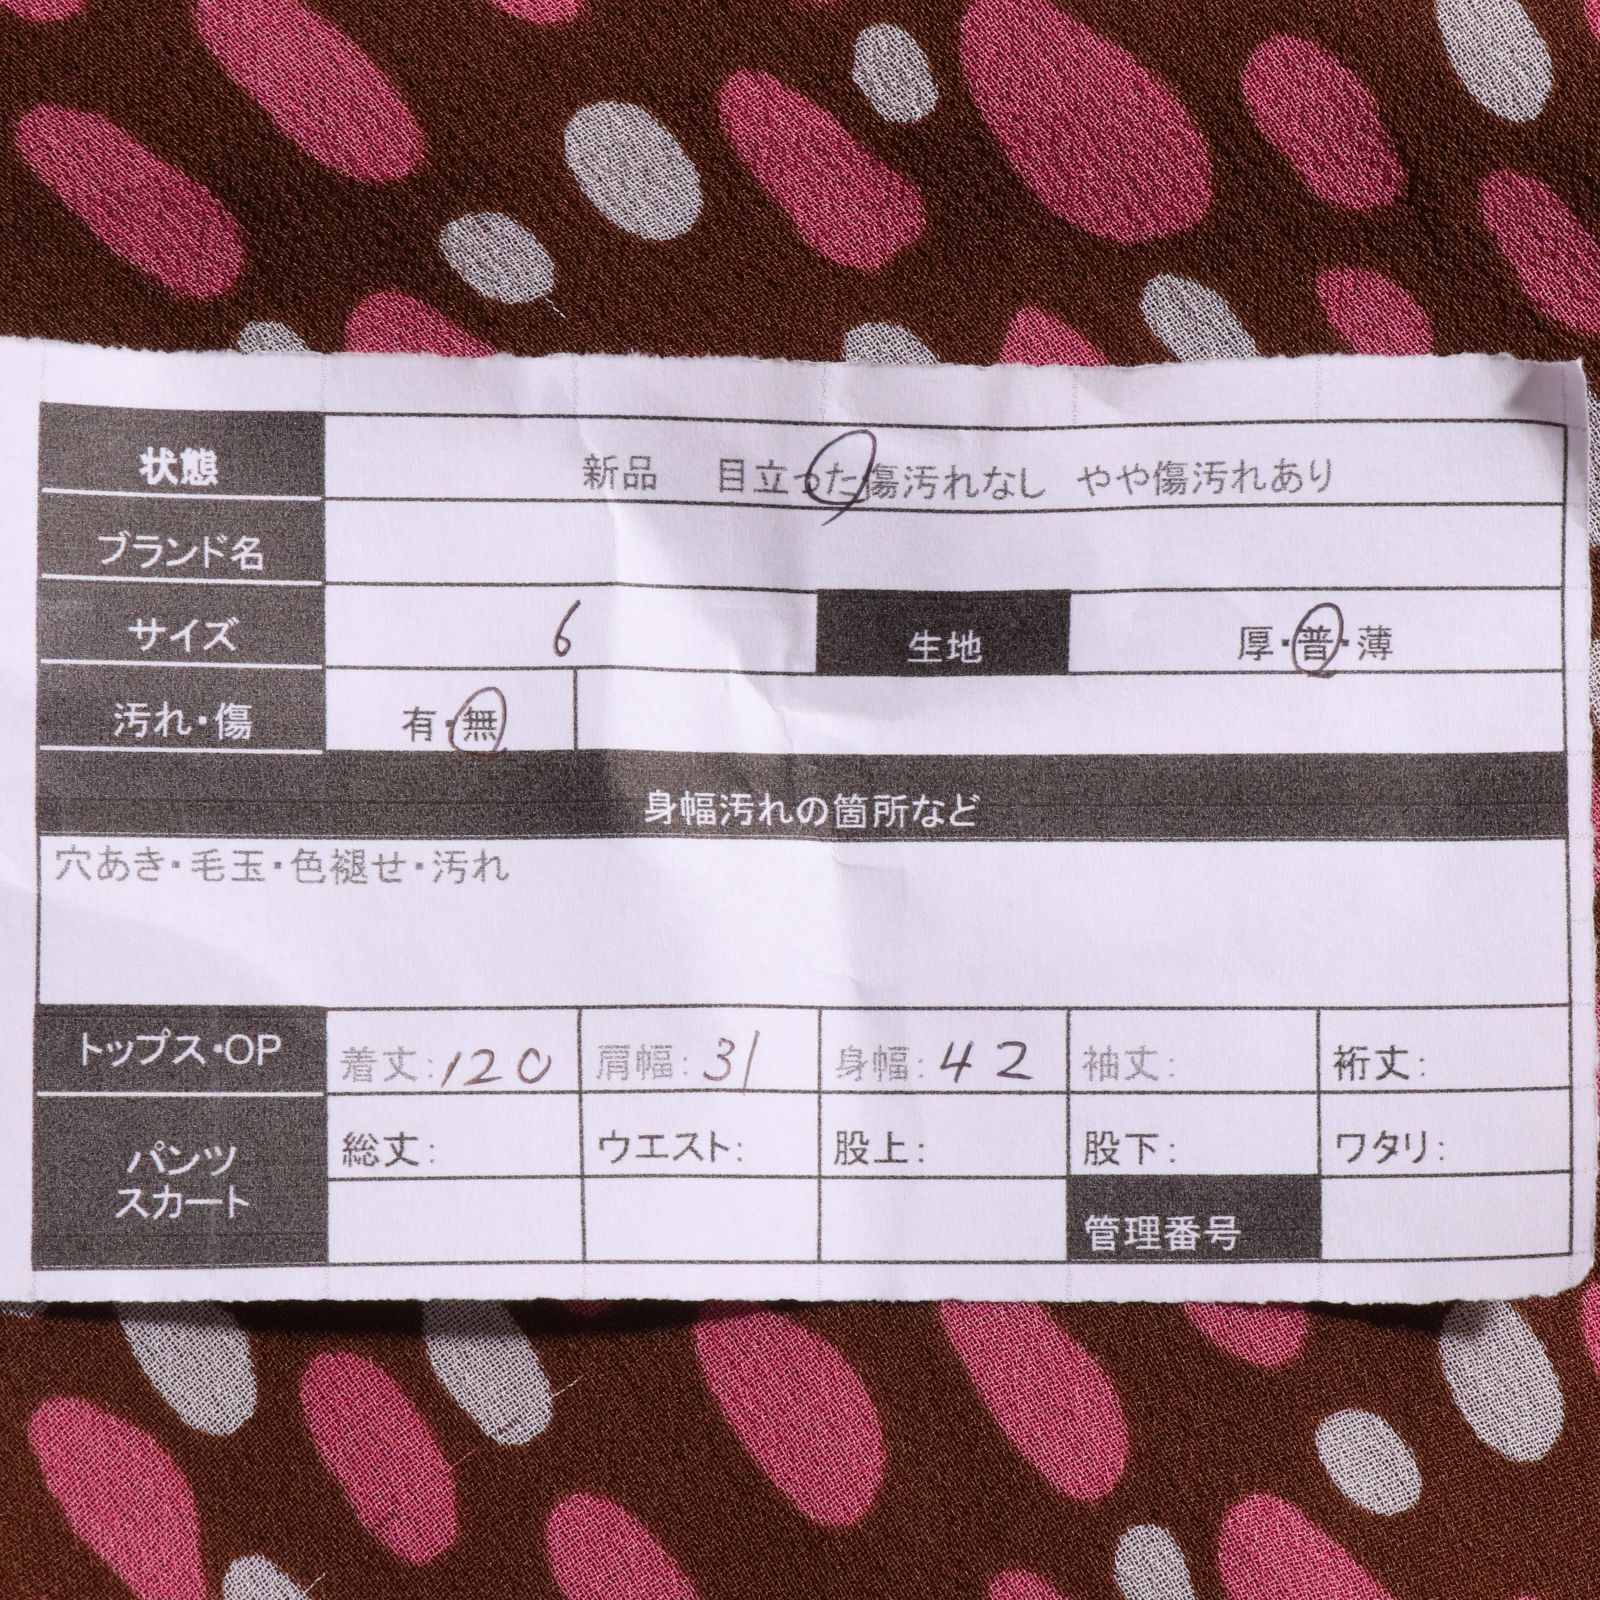 状態 新品 目立った傷汚れなし やや傷汚れあり
ブランド名
サイズ 6 生地 厚・普・薄
汚れ・傷 有・無
身幅汚れの箇所など
穴あき・毛玉・色褪せ・汚れ
トップス・OP 着丈:120 肩幅:31 身幅:42 袖丈: 裄丈:
パンツ 総丈: ウエスト: 股上: 股下: ワタリ:
スカート
管理番号